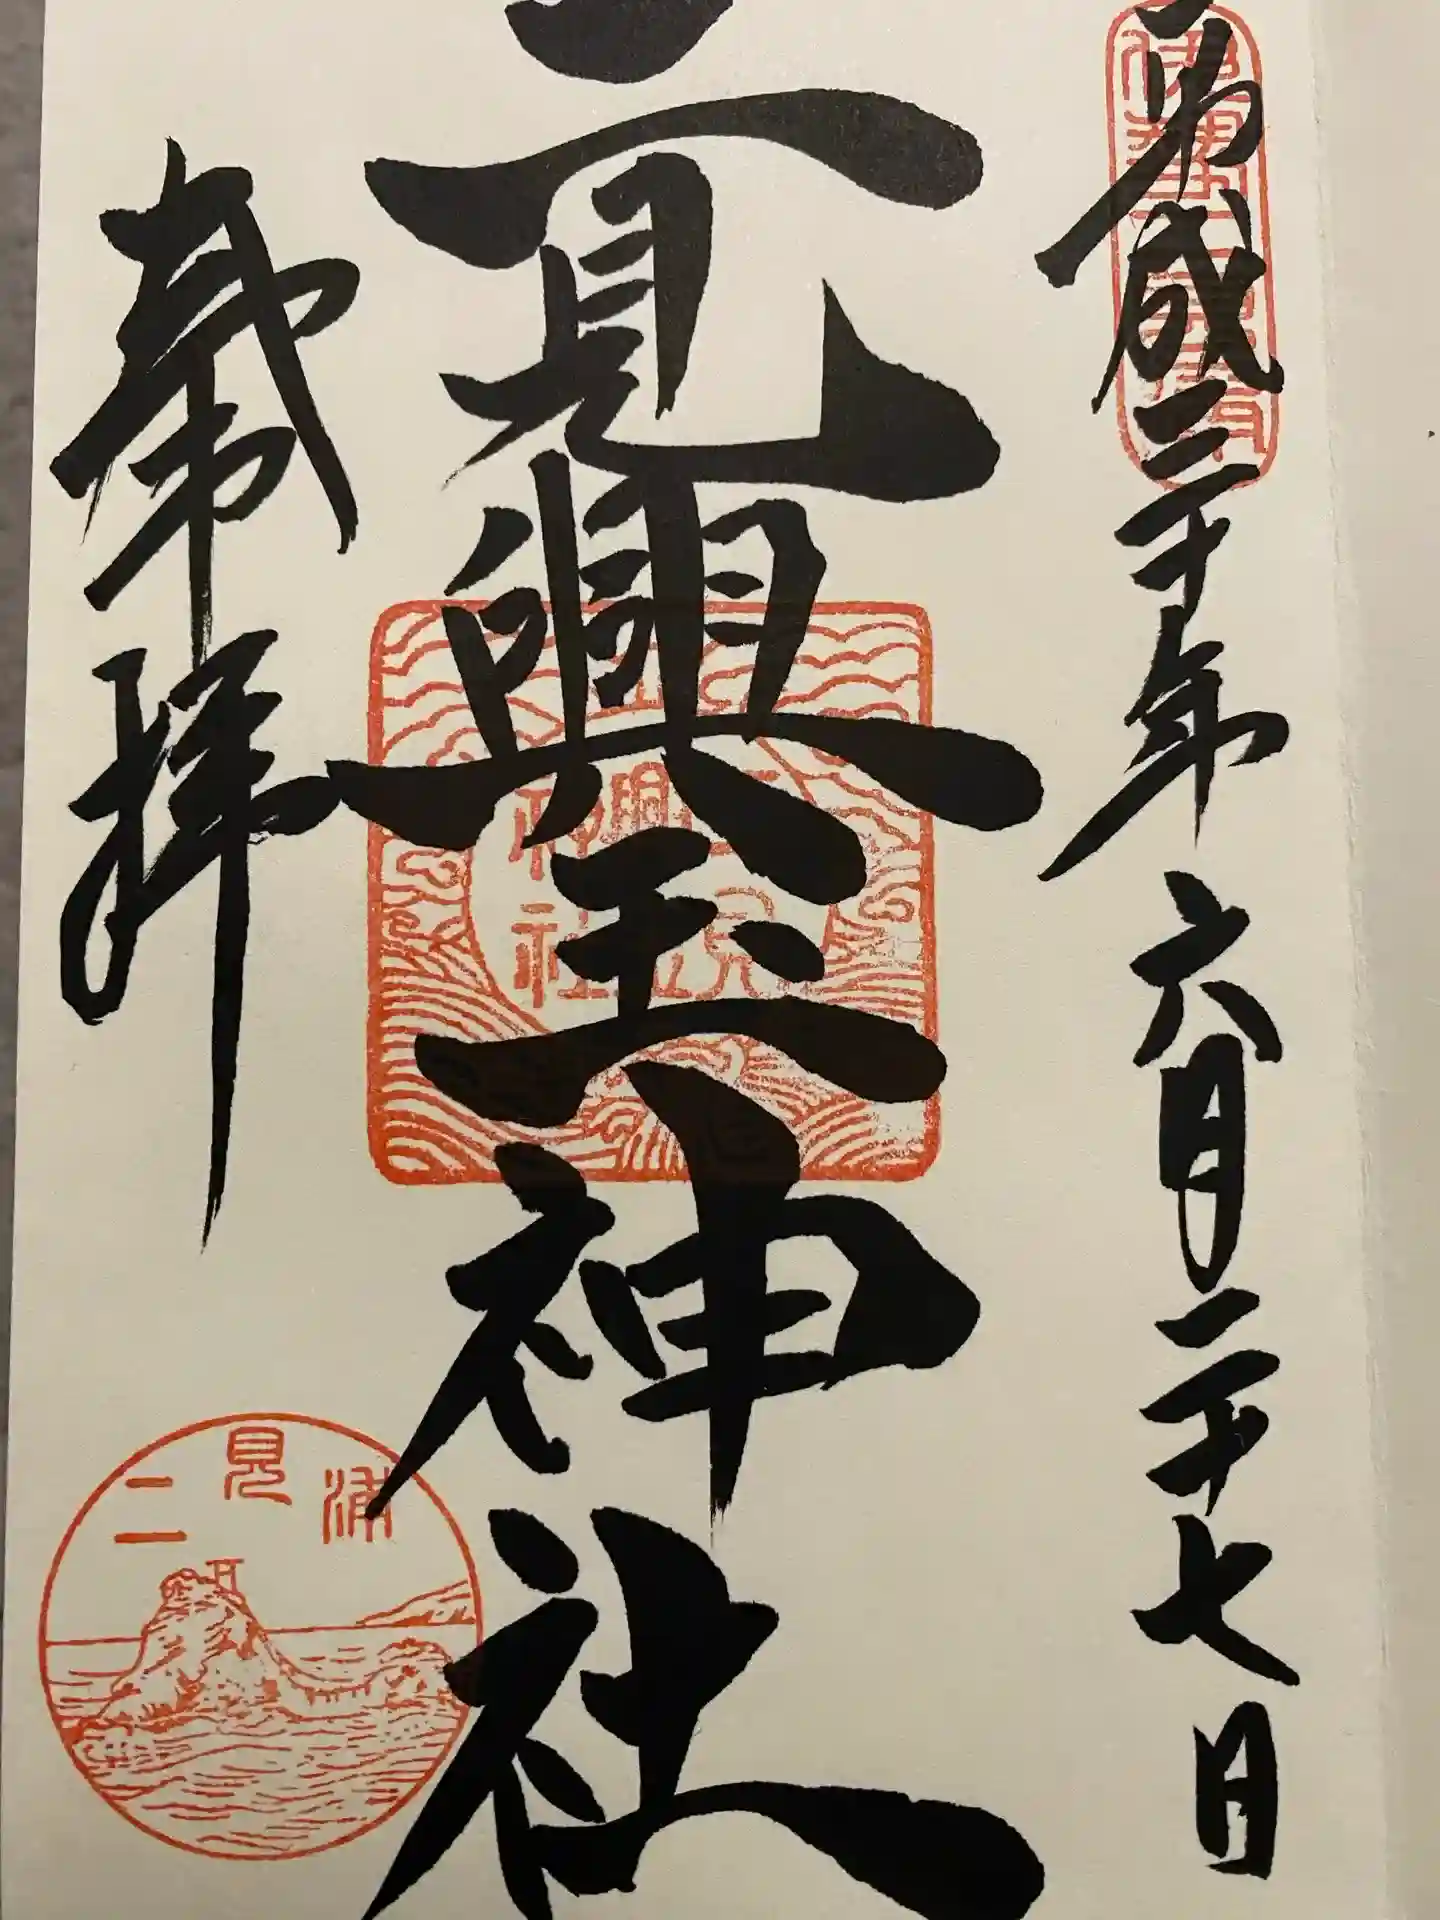 平成三十年六月二十七日
二見興玉神社
奉拝
二見興玉神社
二見浦